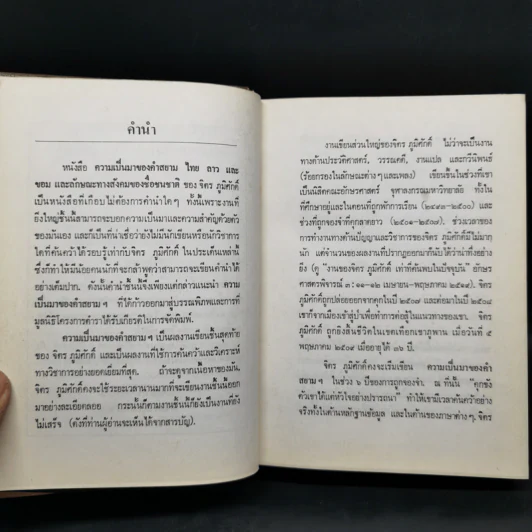 คำนำ
หนังสือ ความเป็นมาของคำสยาม ไทย ลาว และ
ขอม และลักษณะทางสังคมของชื่อชนชาติ ของ จิตร ภูมิศักดิ์
เป็นหนังสือที่เกือบไม่ต้องการคำนำใดๆ ทั้งนี้เพราะงานที่
ยิ่งใหญ่ชิ้นนี้สามารถจะบอกความเป็นมาและความสำคัญด้วยตัว
ของมันเอง และก็เป็นที่น่าเชื่อว่ายังไม่มีนักเขียนหรือนักวิชาการ
ใดที่ค้นคว้าได้รอบรู้เท่ากับจิตร ภูมิศักดิ์ ในประเด็นเหล่านี้
ซึ่งก็ทำให้มีน้อยคนนักที่จะกล้าพูดว่าสามารถจะเขียนคำนำได้
อย่างเต็มปาก. ดังนั้นคำนำชิ้นนี้จึงเพียงแต่กล่าวแนะนำ ความ
เป็นมาของคำสยาม ฯ ที่ได้ก้าวออกมาสู่บรรณพิภพและการที่
มูลนิธิโครงการตำราได้รับเกียรติในการจัดพิมพ์.
ความเป็นมาของคำสยาม ฯ เป็นผลงานเขียนชิ้นสุดท้าย
ของ จิตร ภูมิศักดิ์ และเป็นผลงานที่ใช้การค้นคว้าและวิเคราะห์
ทางวิชาการอย่างยอดเยี่ยมที่สุด. ถ้าจะดูจากเนื้อหาของมัน,
จิตร ภูมิศักดิ์คงจะใช้ระยะเวลานานมากที่จะเขียนงานชิ้นนี้ออก
มาอย่างละเอียดลออ กระนั้นก็ตามงานชิ้นนี้ก็ยังเป็นงานที่ยัง
ไม่เสร็จ (ดังที่ท่านผู้อ่านจะเห็นได้จากสารบัญ).
งานเขียนส่วนใหญ่ของจิตร ภูมิศักดิ์ ไม่ว่าจะเป็นงาน
ทางด้านประวัติศาสตร์, วรรณคดี, งานแปล และกวีนิพนธ์
(ร้อยกรองในลักษณะต่าง ๆ และเพลง) เขียนขึ้นในช่วงที่เขา
เป็นนิสิตคณะอักษรศาสตร์ จุฬาลงกรณ์มหาวิทยาลัย ทั้งใน
ที่ศึกษาอยู่และในตอนที่ถูกพักการเรียน (๒๔๙๓-๒๕๐๐) และ
ช่วงที่ถูกจองจำที่คุกลาดยาว (๒๕๐๑-๒๕๐๗). ช่วงเวลาของ
การทำงานทางด้านปัญญาและวิชาการของจิตร ภูมิศักดิ์มีไม่มากนัก
แต่จำนวนของผลงานที่ปรากฏออกมาก็นับได้ว่าน่าทึ่งอย่าง
ยิ่ง (ดู "งานของจิตร ภูมิศักดิ์ เท่าที่ค้นพบในปัจจุบัน" อักษร
ศาสตร์พิจารณ์ ๓: ๑๑-๑๒ เมษายน-พฤษภาคม ๒๕๑๙). จิตร
ภูมิศักดิ์ถูกปล่อยออกจากคุกในปี ๒๕๐๗ และต่อมาในปี ๒๕๐๘
เขาก็จากเมืองเข้าสู่ป่าเพื่อทำการต่อสู้ในแนวทางของเขา. จิตร
ภูมิศักดิ์ ถูกยิงสิ้นชีวิตในเขตเทือกเขาภูพาน เมื่อวันที่ ๕
พฤษภาคม ๒๕๐๙ เมื่ออายุได้ ๓๖ ปี.
จิตร ภูมิศักดิ์คงจะเริ่มเขียน ความเป็นมาของคำ
สยาม ฯ ในช่วง ๖ ปีของการถูกจองจำ. ณ ที่นั้น "คุกขัง
ตัวเขาได้แต่หัวใจอย่าปรารถนา" ทำให้เขามีเวลาค้นคว้าอย่าง
จริงจังทั้งในด้านหลักฐานข้อมูล และในด้านของภาษาต่างๆ. จิตร